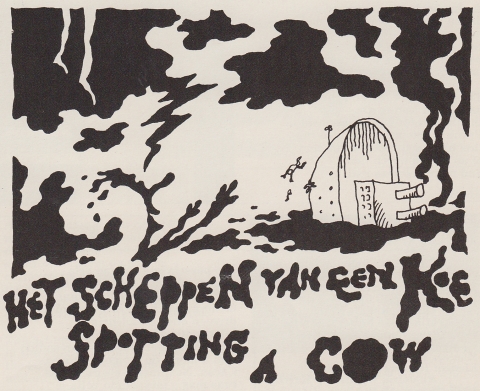 HET SCHEPPEN VAN EEN KOE
SPOTTING A COW